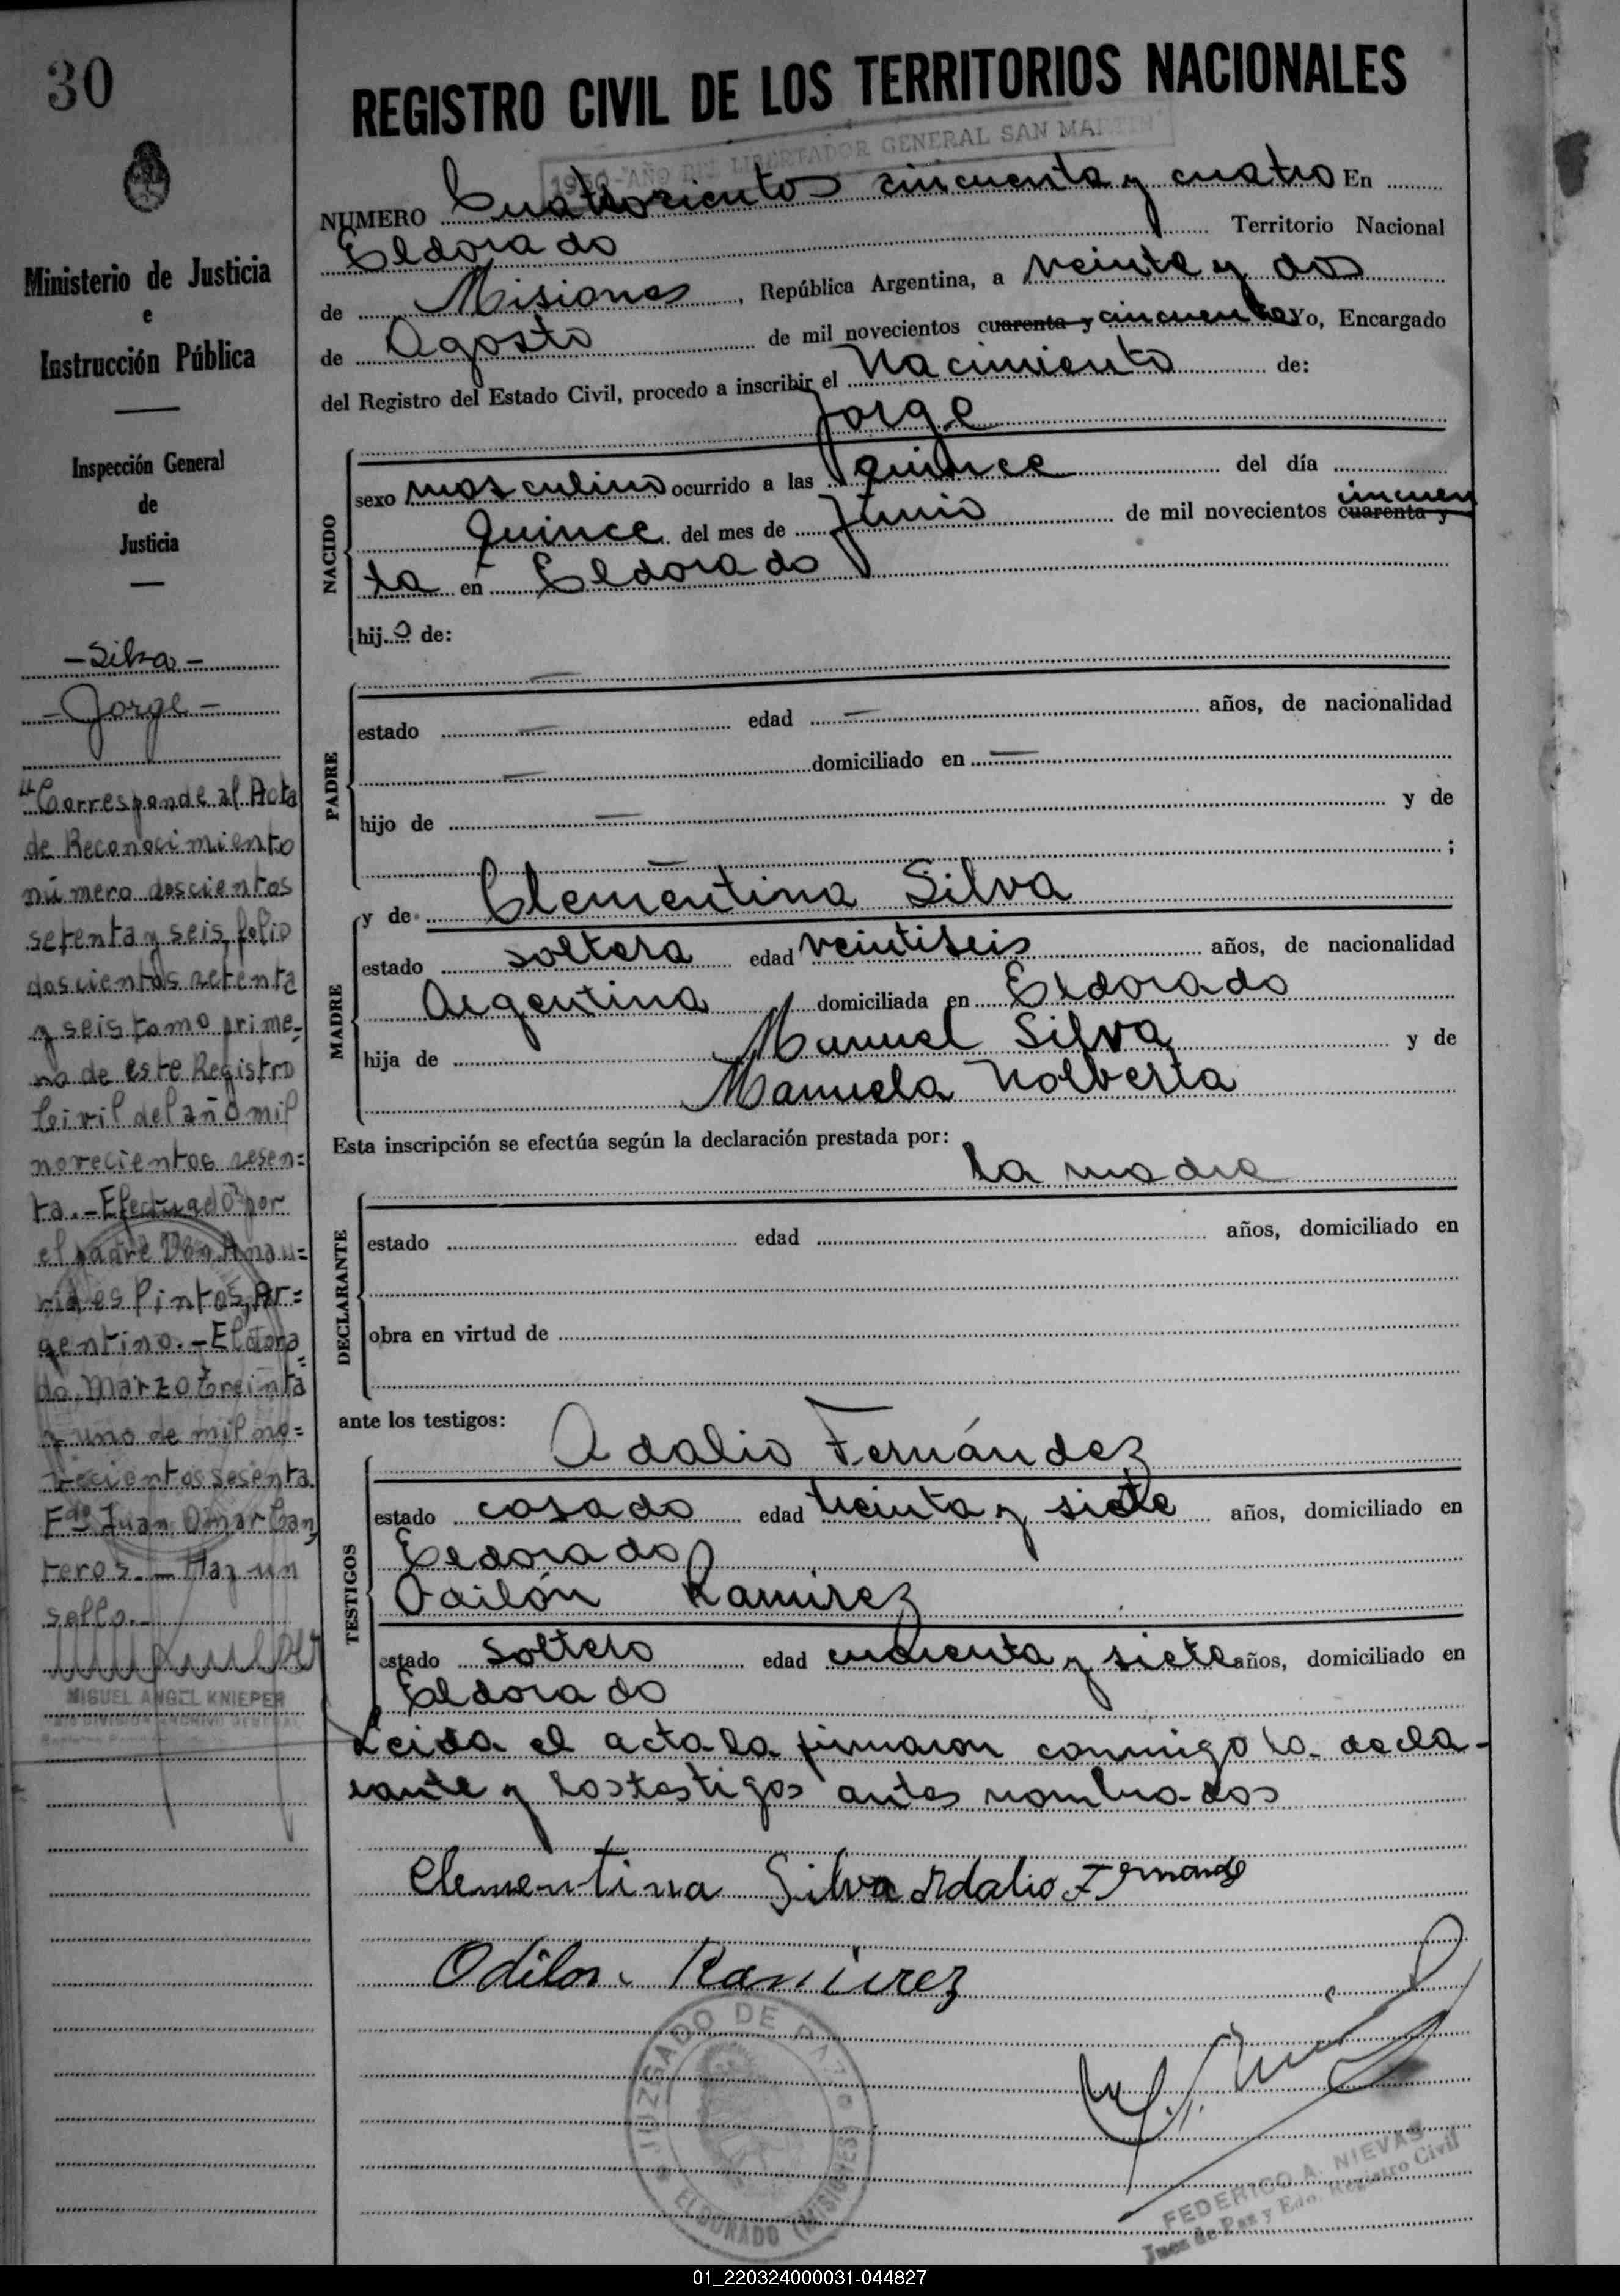 30
Ministerio de Justicia
e
Instrucción Pública
Inspección General
de
Justicia
-Silva-
-Jorge-
"Corresponde al Acta
de Reconocimiento
número doscientos
setenta y seis, folio
doscientos setenta
y seis tomo prime-
ro de este Registro
Civil del año mil
novecientos sesen=
ta.-Efectuado por
el padre Don
Pintos, Ar=
gentino.-Eldora
do, Marzo treinta
y uno de mil no=
vecientos sesenta.
Fdo Juan Omar Can
teros.- Hay un
sello.-
MIGUEL ANGEL KNIEPER
REGISTRO CIVIL DE LOS TERRITORIOS NACIONALES
1950-AÑO DEL LIBERTADOR GENERAL SAN MARTIN
NUMERO Cuatrocientos cincuenta y cuatro En
Eldorado Territorio Nacional
de Misiones, República Argentina, a veinte y dos
de Agosto de mil novecientos cuarenta y cincuenta Yo, Encargado
del Registro del Estado Civil, procedo a inscribir el Nacimiento de:
Jorge
NACIDO
sexo masculino ocurrido a las quince del día
Quince del mes de Junio de mil novecientos cuarenta y cincuen
ta en Eldorado
hijo de:
PADRE
estado edad años, de nacionalidad
domiciliado en
hijo de y de
;
MADRE
y de Clementina Silva
estado soltera edad veintiseis años, de nacionalidad
Argentina domiciliada en Eldorado
hija de Manuel Silva y de
Manuela Nolberta
Esta inscripción se efectúa según la declaración prestada por:
la madre
DECLARANTE
estado edad años, domiciliado en
obra en virtud de
ante los testigos:
TESTIGOS
Adalio Fernández
estado casado edad treinta y siete años, domiciliado en
Eldorado
Odilón Ramirez
estado soltero edad cuarenta y siete años, domiciliado en
Eldorado
Leida el acta la firmaron conmigo la decla-
rante y los testigos antes nombrados
Clementina Silva Adalio Fernande
Odilon Ramirez
JUZGADO DE PAZ
ELDORADO (MISIONES)
FEDERICO A. NIEVAS
Juez de Paz y Edo. Registro Civil
01_220324000031-044827